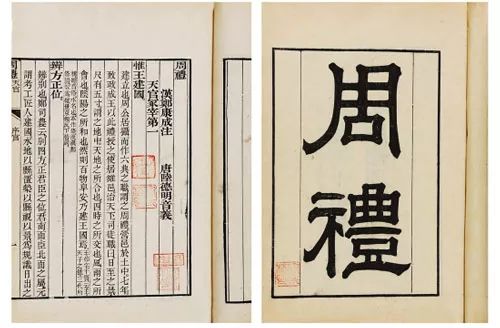 周禮
周禮
漢鄭康成注　唐陸德明音義
天官冢宰第一
惟王建國
建立也周公居攝而作六典之職謂之周禮營邑於土中七年
致政成王以此禮授之使居雒邑治天下司徒職曰日至之景
尺有五寸謂之地中天地之所合也四時之所交也風雨之所
會也陰陽之所和也然則百物阜安乃建王國焉
辨方正位
辨別也鄭司農云別四方正君臣之位君南面臣北面之屬元
謂考工匠人建國水地以縣置槷以縣眡以景為規識日出之
周禮 天官
序官
一